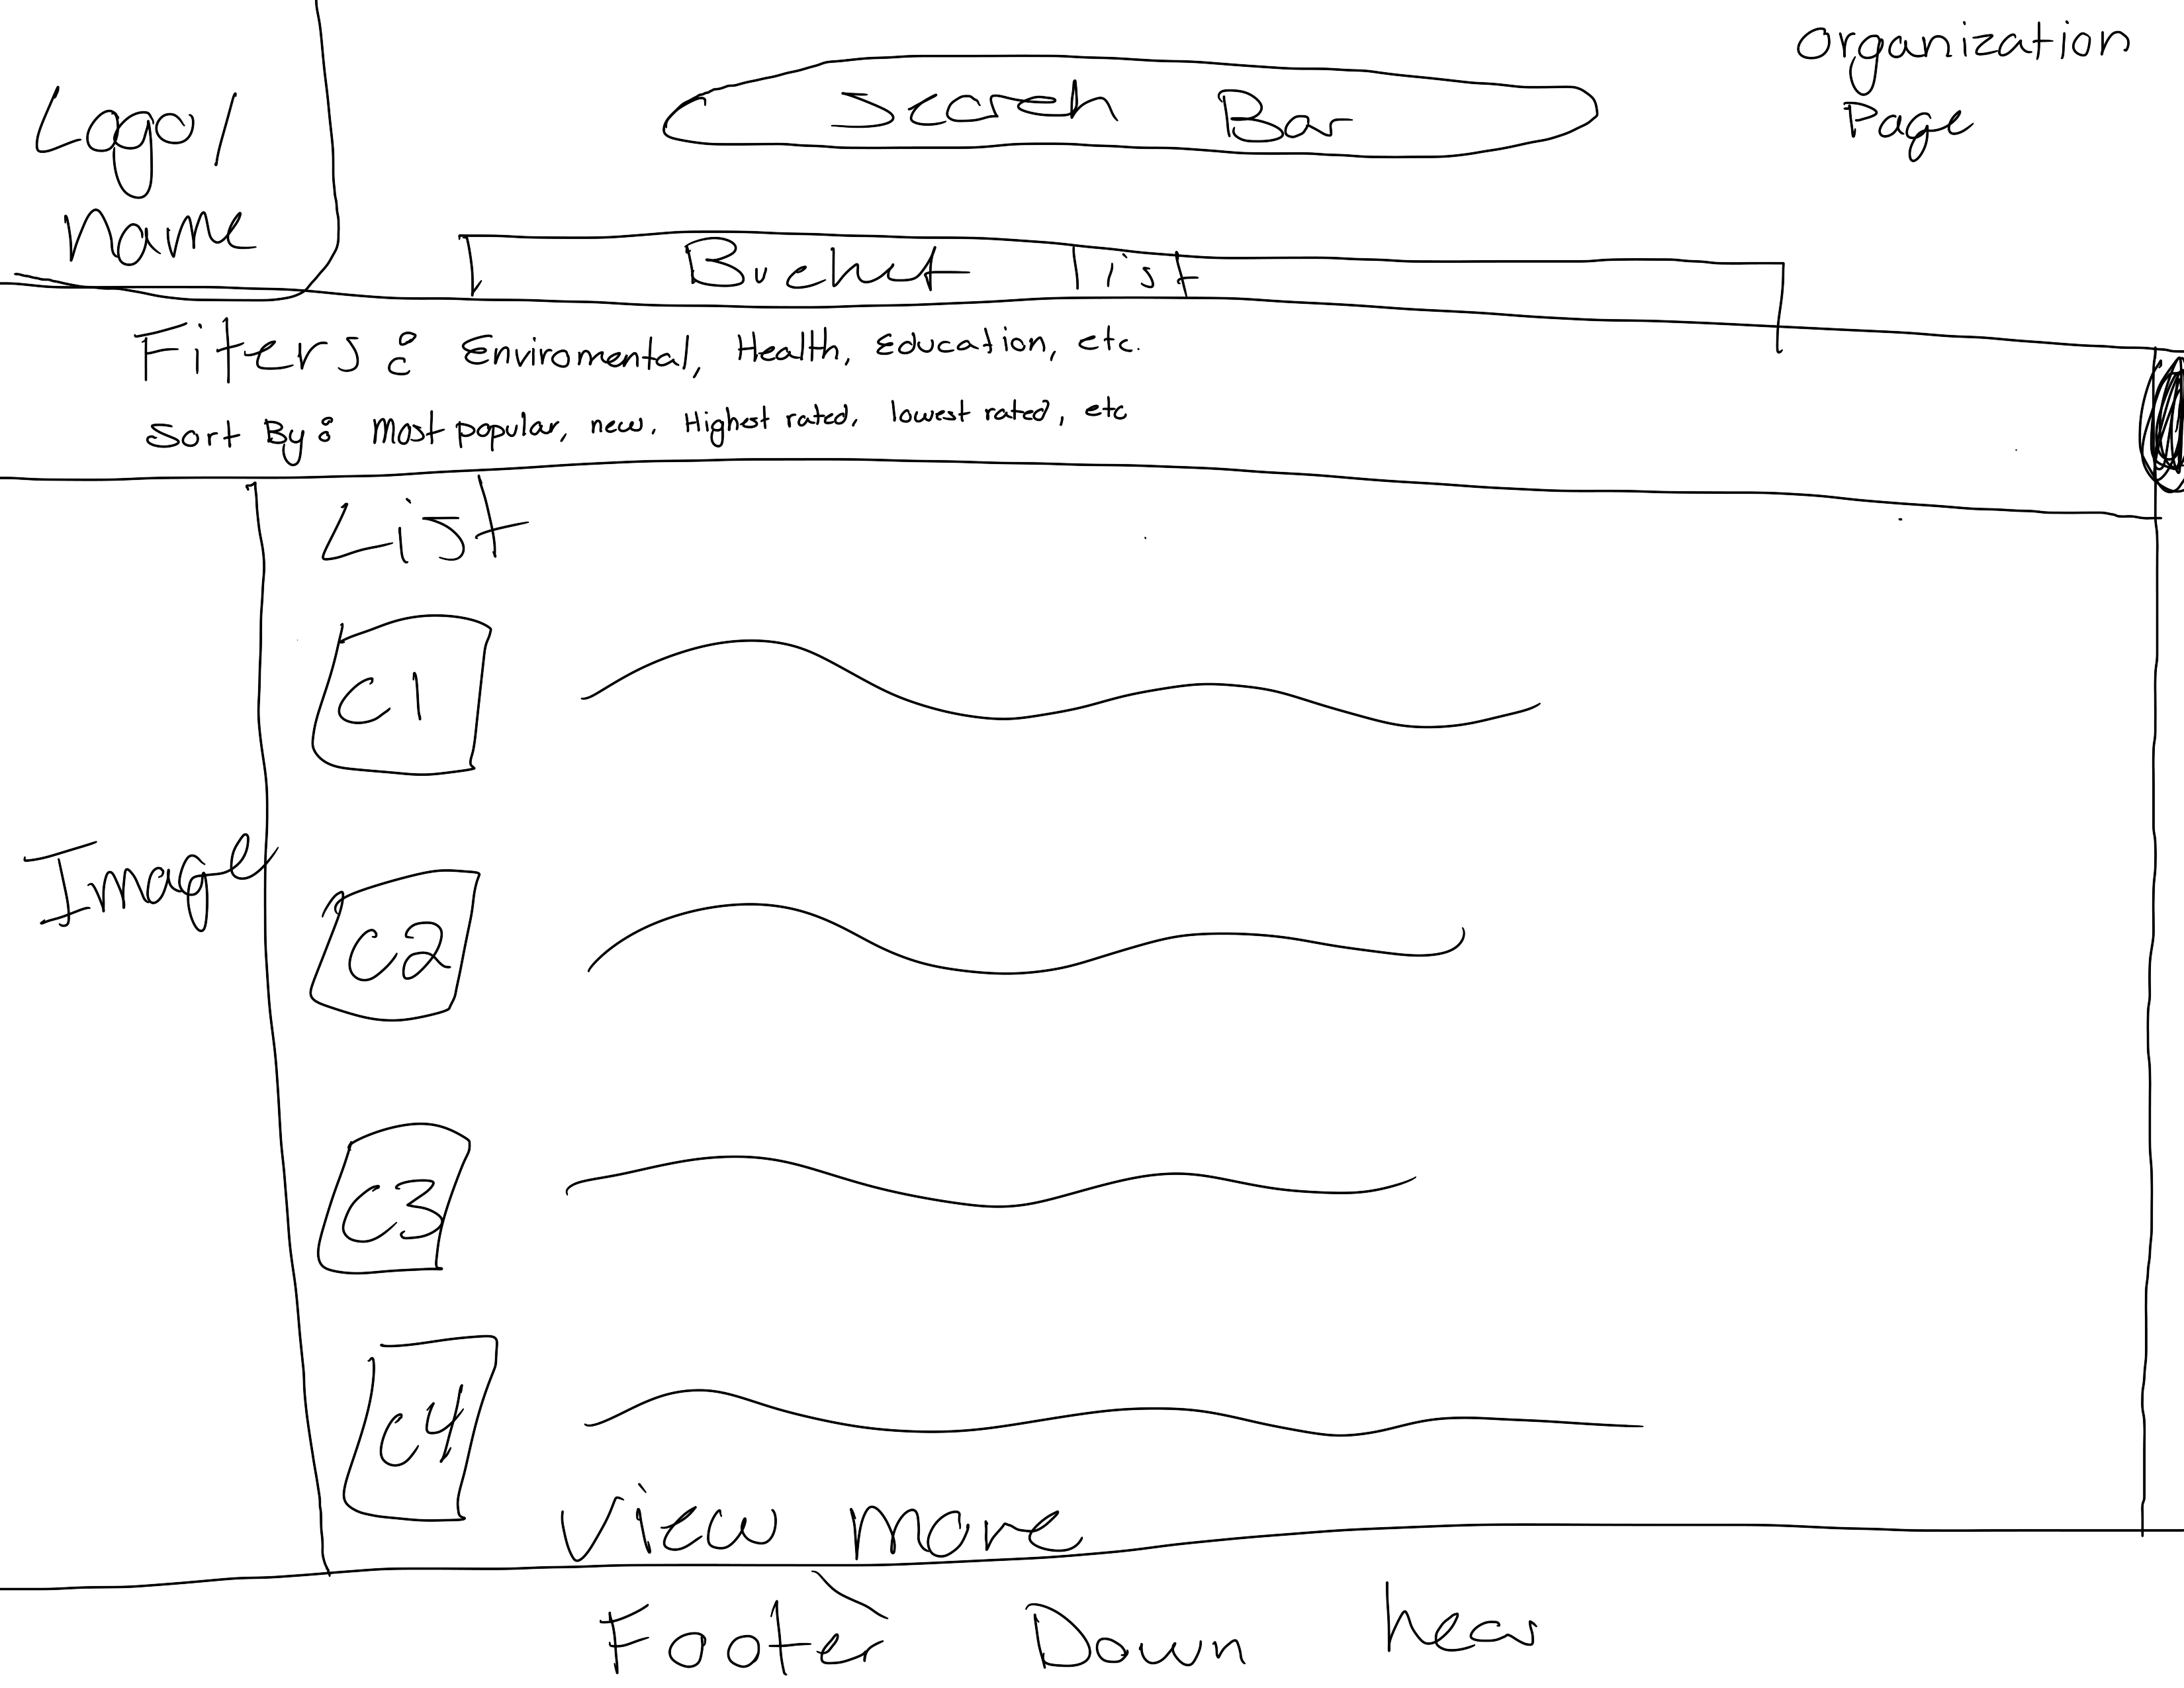 Logo/
Name
Search Bar
Organization
Page
Bucket List
Filters: Enviromental, Health, Education, etc.
Sort By: Most popular, new, Highest rated, lowest rated, etc
List
C1
C2
Image
C3
C4
View more
Footer Down hear